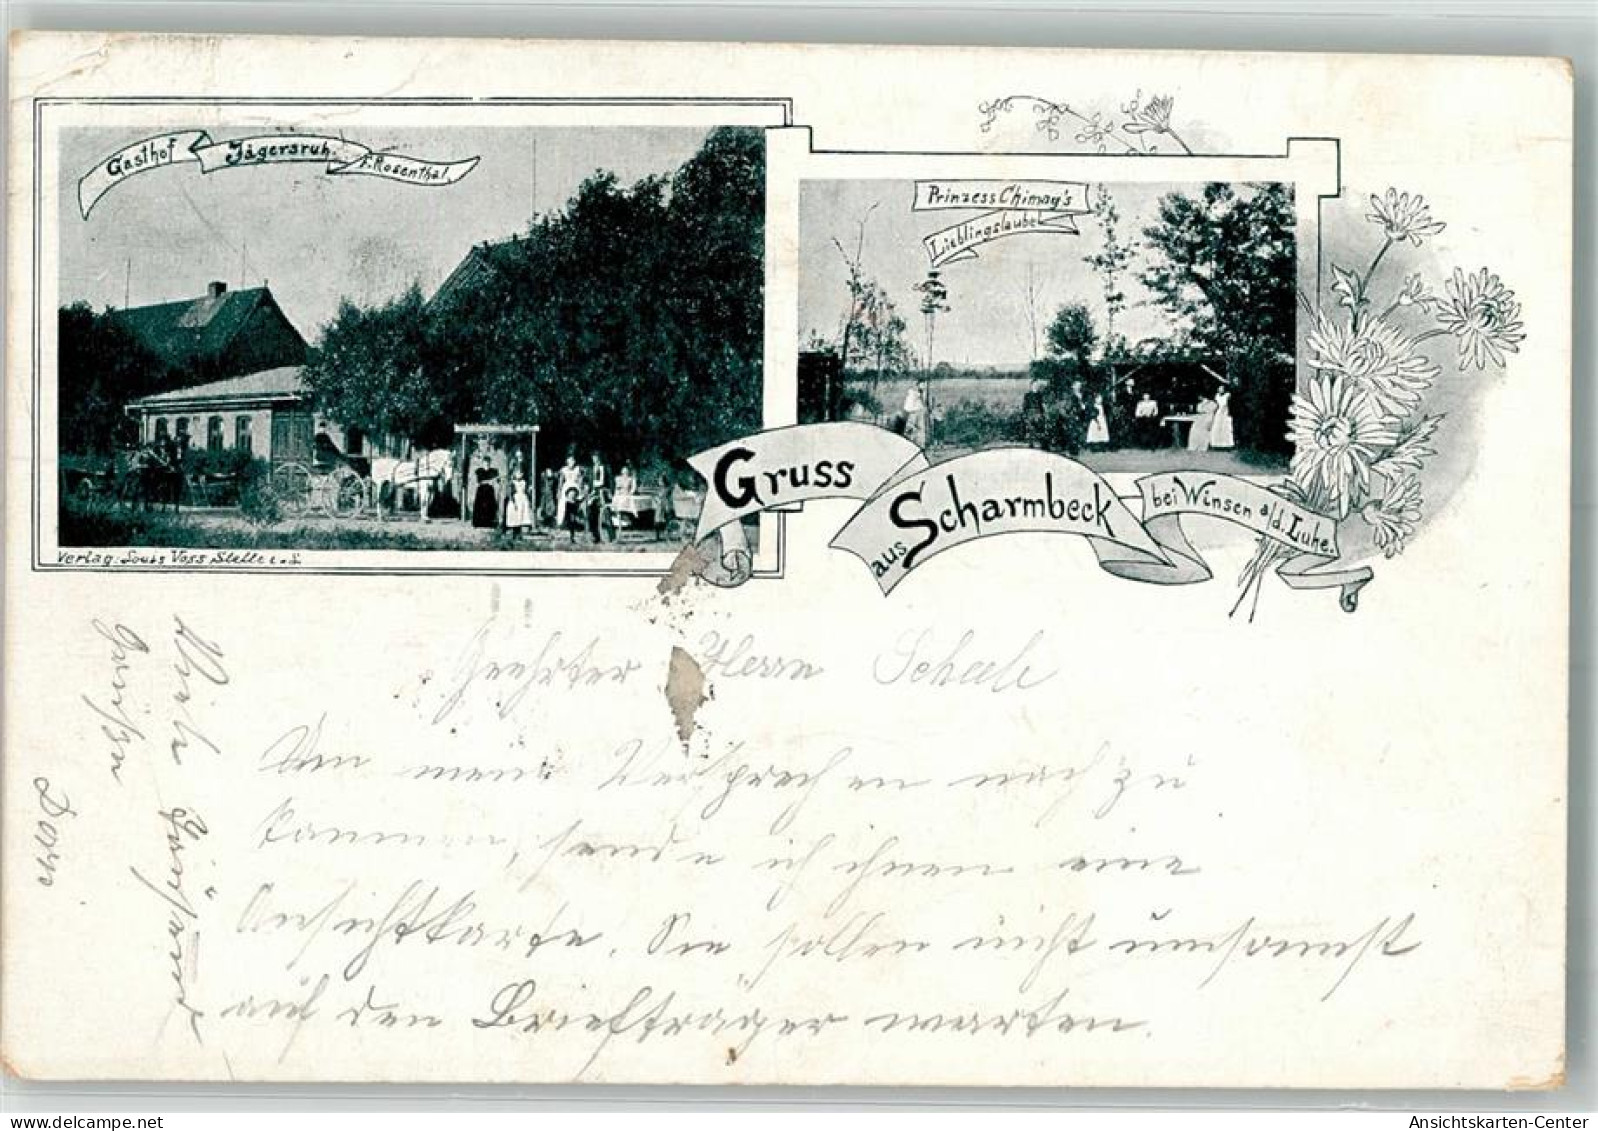 Gasthof Jägersruh. F. Rosenthal.
Prinzess Chimay's
Lieblingslaube
Gruss
aus Scharmbeck
bei Winsen a/d. Luhe.
Verlag: Louis Voss Stelle i. H.
Geehrter Herrn Scheele
Um mein Versprechen nach zu
kommen, sende ich ihnen eine
Ansichtkarte. Sie sollen nicht umsonnst
auf den Briefträger warten.
Viele Grüße
Dorn
Ansichtskarten-Center